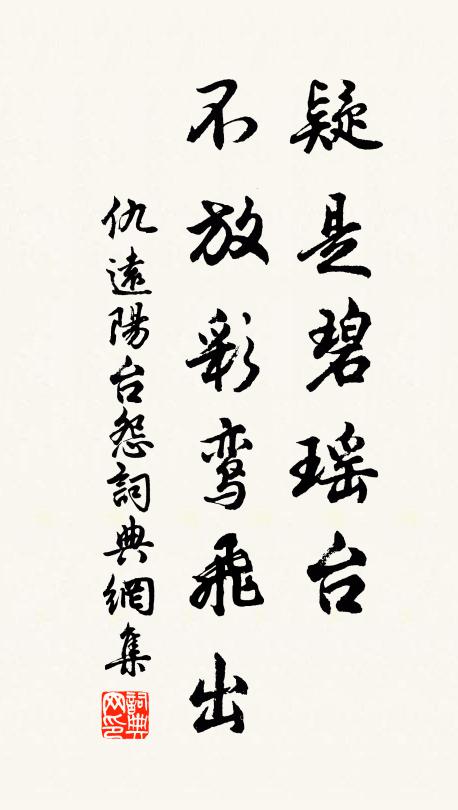 疑是碧瑶台
不放彩鸾飛出
仇遠陽台怨詞典網集
詞典网印